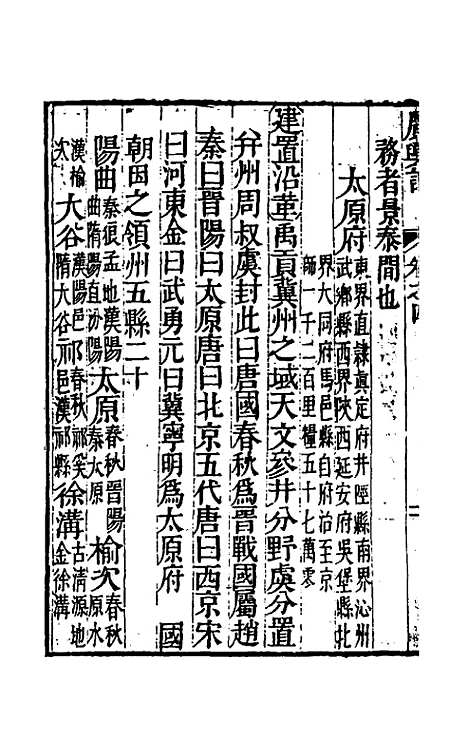 務者景泰間也
太原府
東界直隷眞定府井陘縣南界沁州
武鄉縣西界陜西延安府吳堡縣北
界大同府馬邑縣自府治至京
師一千二百里糧五十七萬零
建置沿革禹貢冀州之域天文參井分野虞分置
幷州周叔虞封此曰唐國春秋爲晉戰國屬趙
秦曰晉陽曰太原唐曰北京五代唐曰西京宋
曰河東金曰武勇元曰冀寧明爲太原府 國
朝因之領州五縣二十
陽曲
秦狼孟地漢陽
曲隋陽直汾陽
太原
春秋晉陽
秦太原
榆次
春秋
原水
漢榆
次
太谷
漢陽邑
隋太谷
祁
春秋祁奚
邑漢祁縣
徐溝
古清源地
金徐溝